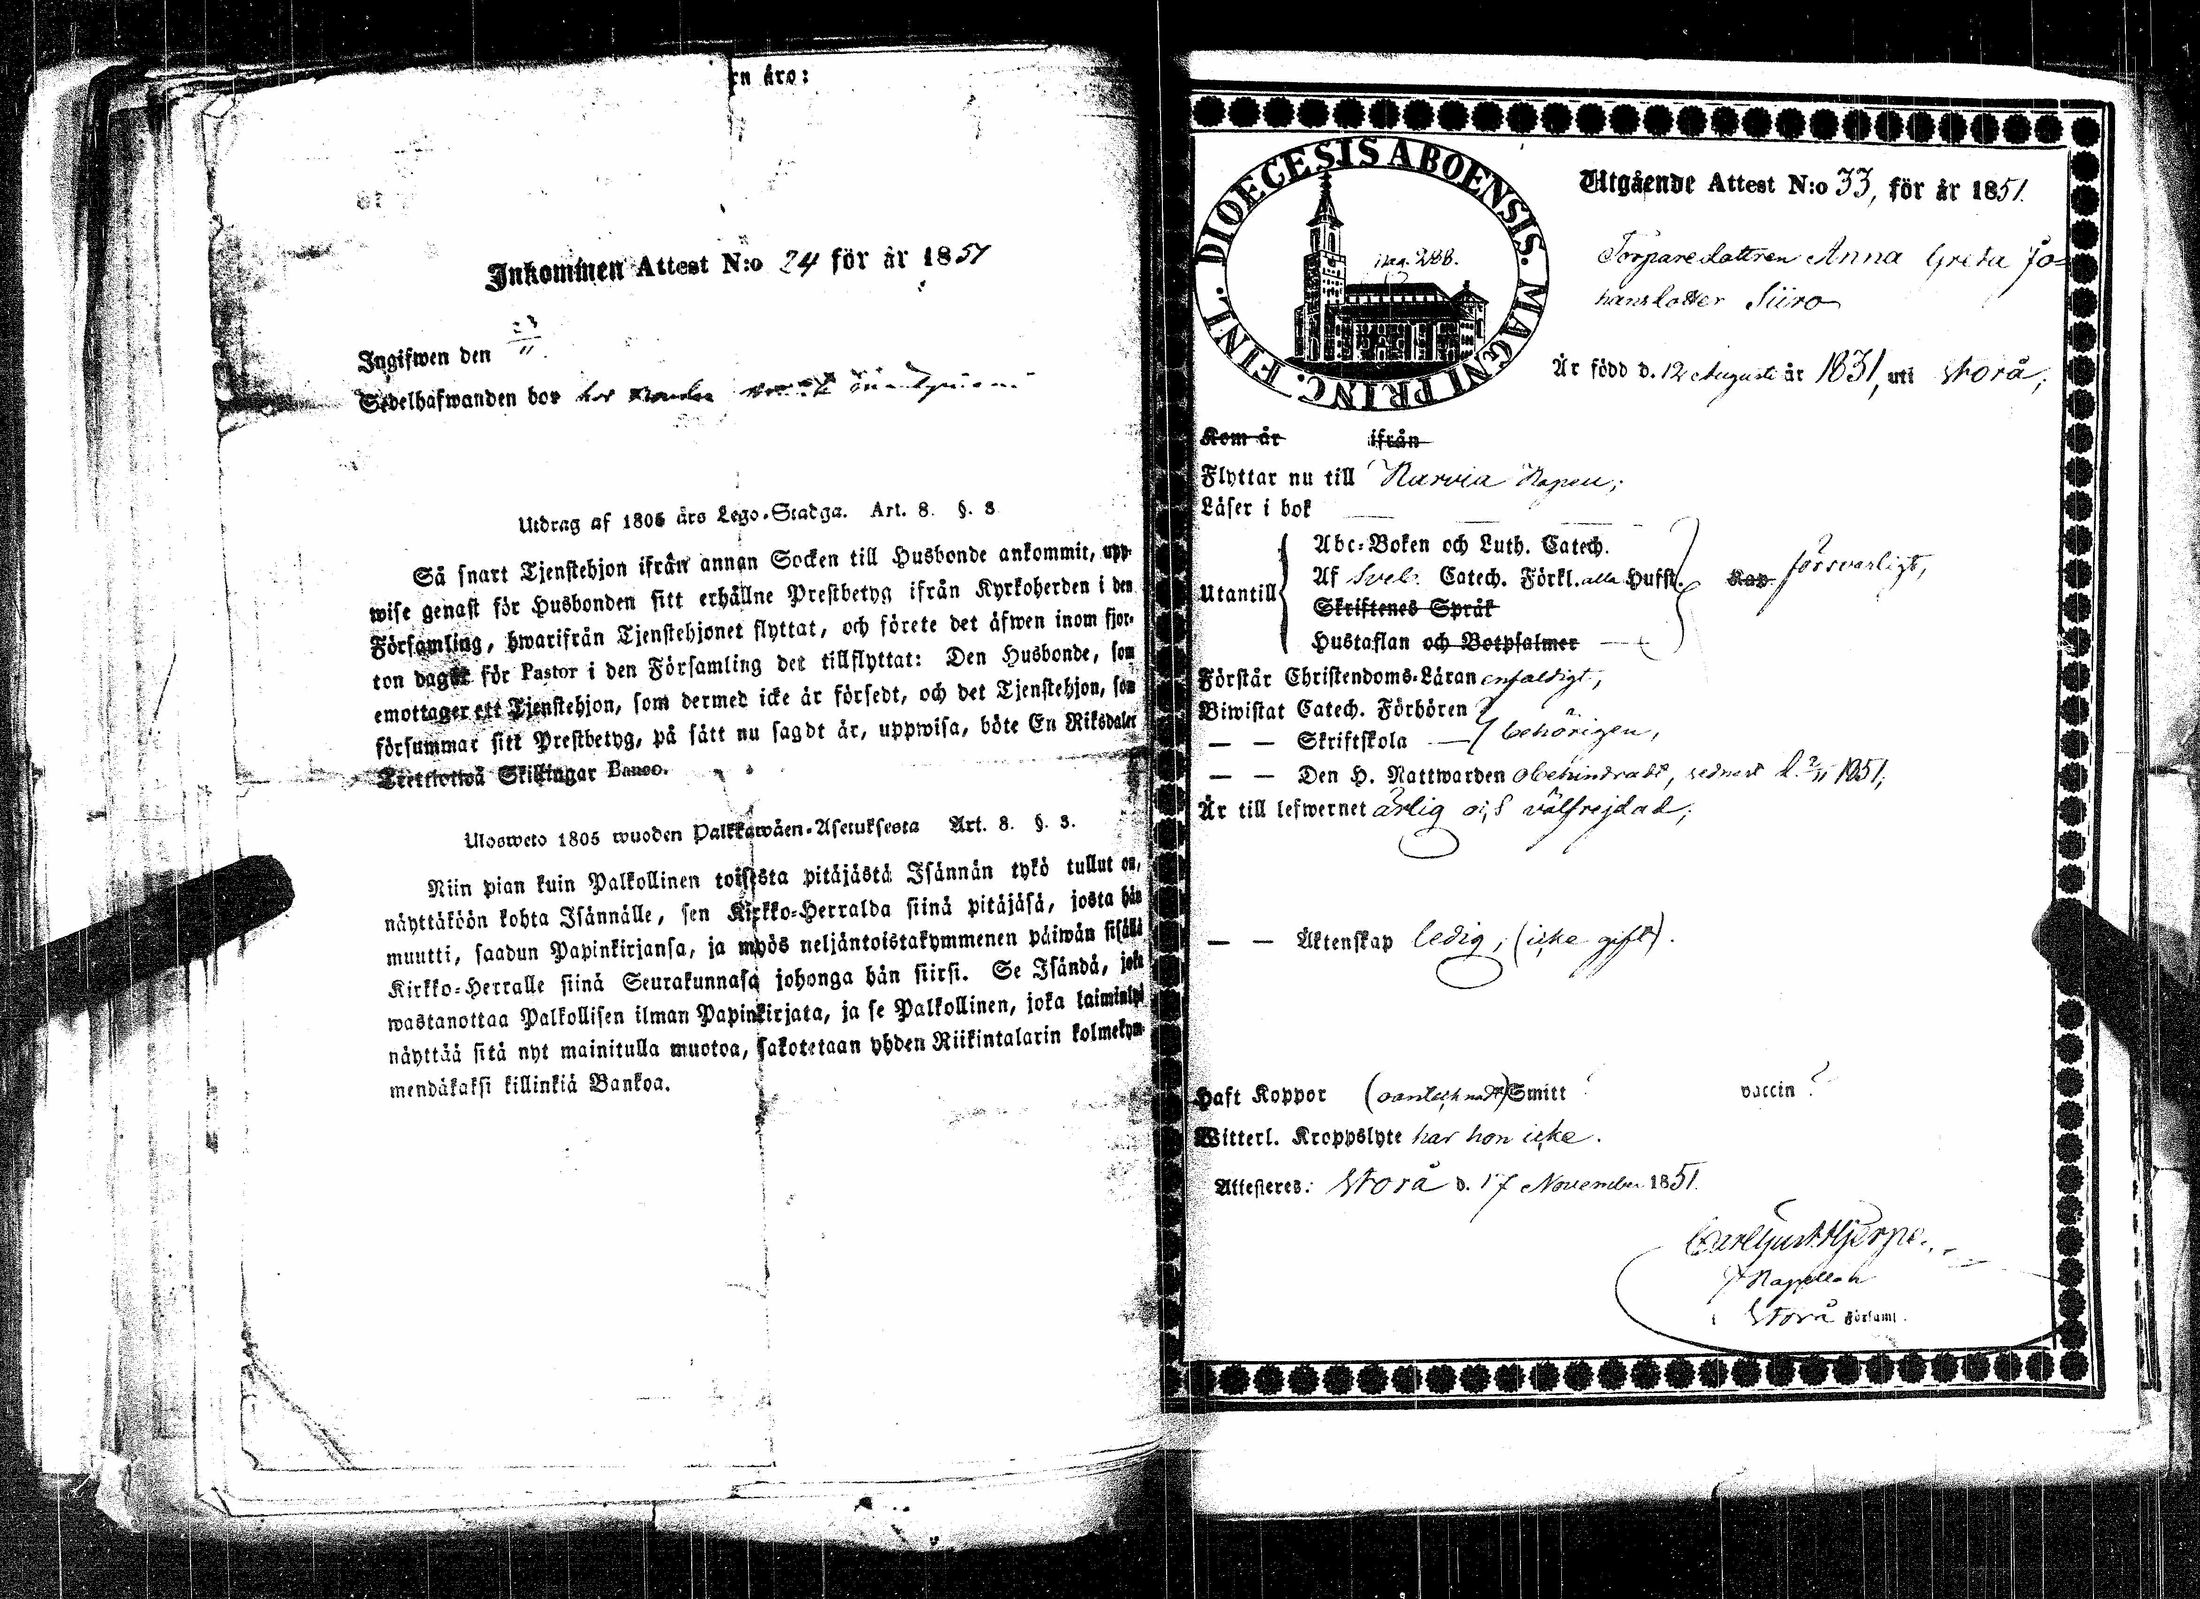 rn äro:
Inkommen Attest N:o 24 för år 1851
Ingifwen den 23/11.
Sedelhafwanden bor hos
Utdrag af 1805 års Lego-Stadga. Art. 8. §. 3
Så snart Tjenstehjon ifrån annan Socken till Husbonde ankommit, upp-
wise genast för Husbonden sitt erhållne Prestbetyg ifrån Kyrkoherden i den
Församling, hwarifrån Tjenstehjonet flyttat, och förete det äfwen inom fjor-
ton dagar för Pastor i den Församling det tillflyttat: Den Husbonde, som
emottager ett Tjenstehjon, som dermed icke är försedt, och det Tjenstehjon, som
försummar sitt Prestbetyg, på sätt nu sagdt är, uppwisa, böte En Riksdaler
Trettiotwå Skillingar Banco.
Ulosweto 1805 wuoden Palkkawäen-Asetuksesta Art. 8. §. 3.
Niin pian kuin Palkollinen toisesta pitäjästä Isännän tykö tullut on,
näyttäköön kohta Isännälle, sen Kirkko-Herralda siinä pitäjäsä, josta hän
muutti, saadun Papinkirjansa, ja myös neljäntoistakymmenen päiwän sisällä
Kirkko-Herralle siinä Seurakunnasa johonga hän siirsi. Se Isändä, joka
wastanottaa Palkollisen ilman Papinkirjata, ja se Palkollinen, joka laiminlyö
näyttää sitä nyt mainitulla muotoa, sakotetaan yhden Riikintalarin kolmekym-
mendäkaksi killinkiä Bankoa.
DIOECESIS ABOENSIS. MAGNI PRINC. FINL.
pag. 288.
Utgående Attest N:o 33, för år 1851.
Torparedottren Anna Greta Jo-
hansdotter Siiro
Är född d. 12 Augusti år 1831, uti Storå;
Kom år ifrån
Flyttar nu till Karvia Kapell;
Läser i bok
Abc-Boken och Luth. Catech.
Af Sveb. Catech. Förkl. alla Hufst.
Utantill Rap försvarligt,
Skriftenes Språk
Hustaflan och Botpsalmer
Förstår Christendoms-Läran enfaldigt,
Biwistat Catech. Förhören
— — Skriftskola behörigen,
— — Den H. Nattwarden obehindradt, sednast d. 2/11 1851;
Är till lefwernet ärlig och välfrejdad;
— — Äktenskap ledig, (icke gift).
Haft Koppor (oantecknadt) Smitt ? vaccin ?
Witterl. Kroppslyte har hon icke.
Attesteres: Storå d. 17 November 1851.
Carl Gust. Hjerpe
Kapellan
i Storå Församl.